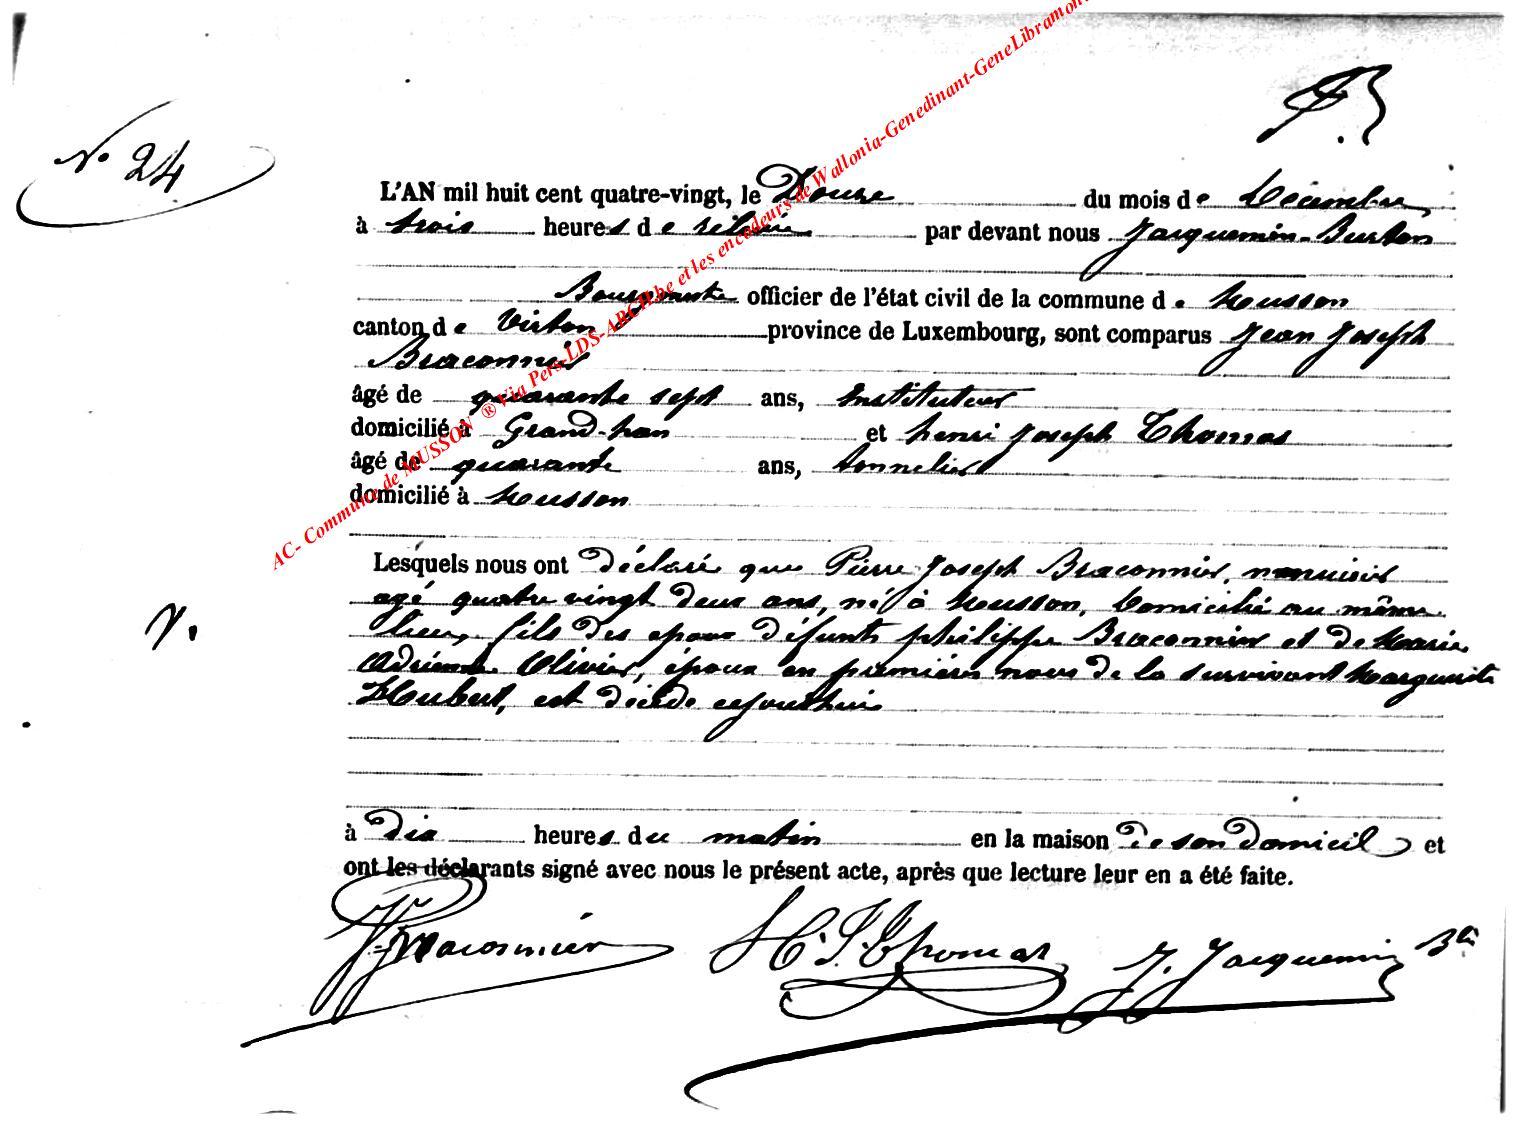 N° 24
L'AN mil huit cent quatre-vingt, le Douze du mois de Décembre
à trois heures de relevée par devant nous Jacquemin-Burton
Bourgmestre officier de l'état civil de la commune de Musson
canton de Virton province de Luxembourg, sont comparus Jean Joseph
Braconnier
âgé de quarante sept ans, Instituteur
domicilié à Grand-han et henri Joseph Thomas
âgé de quarante ans, tonnelier
domicilié à Musson
Lesquels nous ont déclaré que Pierre Joseph Braconnier, menuisier
agé quatre vingt deux ans, né à Musson, domicilié au même
lieu, fils des epoux défunts philippe Braconnier et de Marie
Adrienne Olivier, époux en premières noces de la survivant Marguerite
Hubert, est décédé cejourd'hui
à dix heures du matin en la maison de son domicil et
ont les déclarants signé avec nous le présent acte, après que lecture leur en a été faite.
Braconnier H. J. Thomas J. Jacquemin
AC- Commune de MUSSON ® Via Pers-LDS-ARCH.be et les encodeurs de Wallonia-Genedinant-GeneLibramon